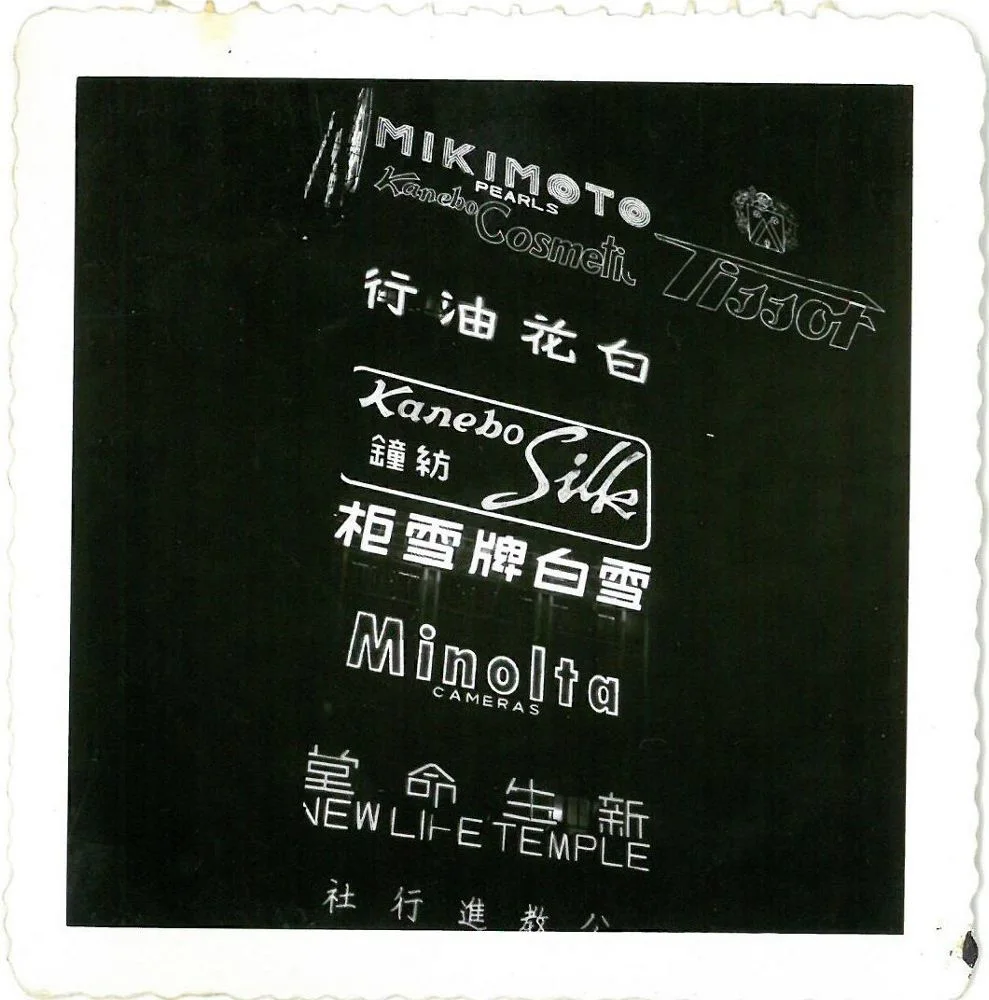 MIKIMOTO
PEARLS
Kanebo Cosmetic
Tissot
白花油行
Kanebo Silk
鐘紡
雪白牌雪柜
Minolta
CAMERAS
新生命堂
NEW LIFE TEMPLE
公教進行社